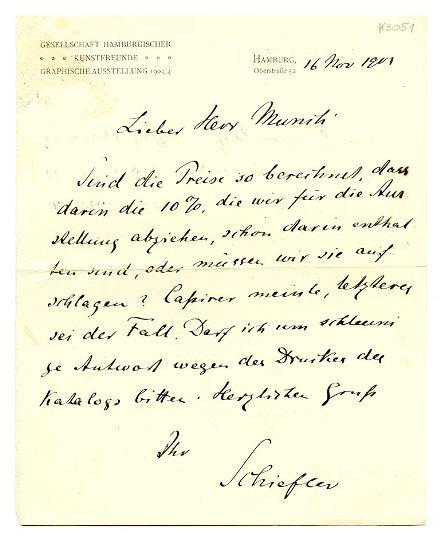 K3051
GESELLSCHAFT HAMBURGISCHER
KUNSTFREUNDE
GRAPHISCHE AUSSTELLUNG 1903/4
HAMBURG,
Oberstraße 52
16 Nov
Lieber Herr Munch
Sind die Preise so berechnet, dass
darin die 10%, die wir für die Aus
stellung abziehen, schon darin enthal
ten sind, oder müssen wir sie auf
schlagen? Cassirer meinte, letzteres
sei der Fall. Darf ich um schleuni
ge Antwort wegen des Druckes des
Katalogs bitten. Herzlichen Gruß
Ihr
Schiefler